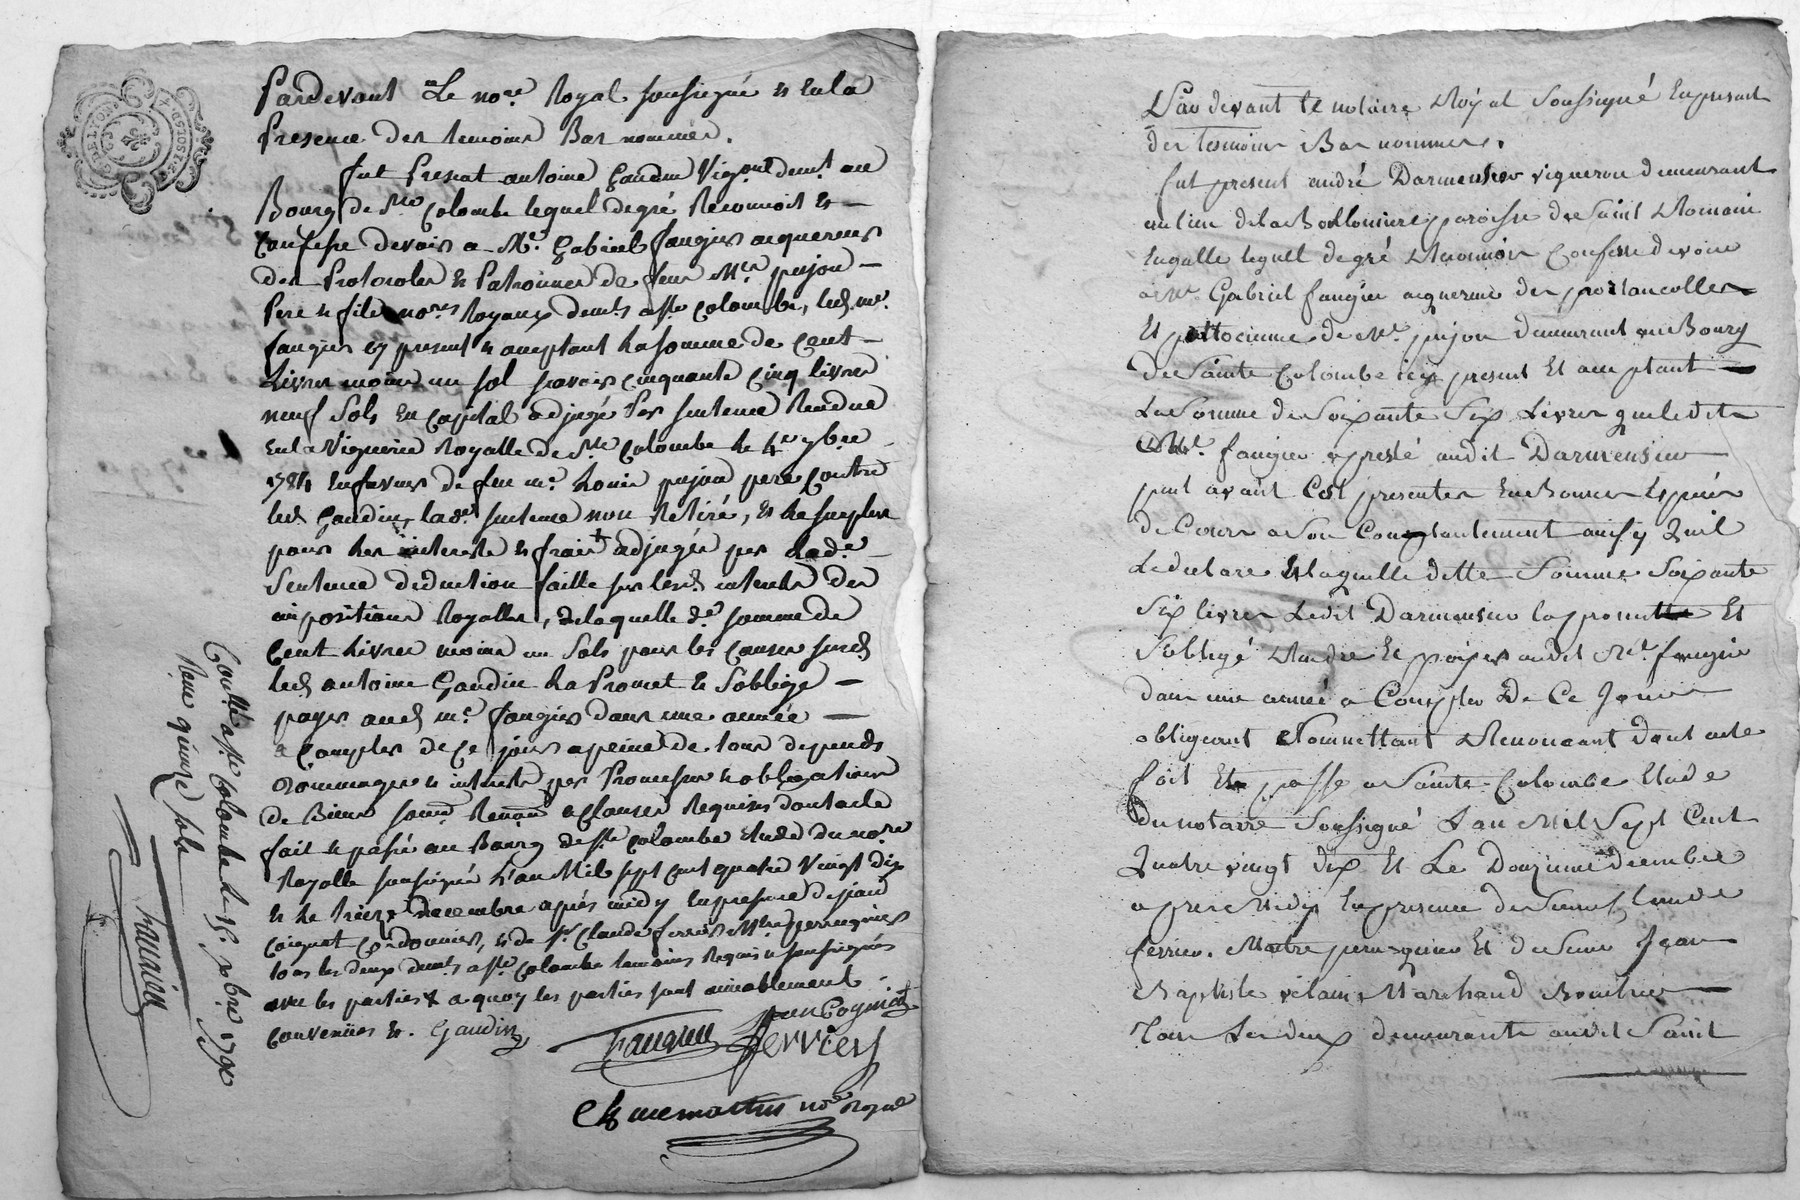 Pardevant Le no.re Royal soussigné & En la
Presence des temoins Bas nommés.
fut Present antoine Gaudin Vig.on dem.t au
Bourg de S.te Colombe lequel de gré Reconnoit &
Confesse devoir a M.e Gabriel faugier acquereur
des Protocoles & Patrouines de feux M.rs pujou
Pere & fils no.res Royaux dem.ts a S.te Colombe, led. m.e
faugier cy present & acceptant La somme de Cent
Livres moins un sol savoir cinquante cinq livres
neuf Sols En Capital adjugé Par sentence Rendue
En la Viguerie Royalle de S.te Colombe Le 4.e 7bre
1784 En faveur de feu m.e Louis pujou pere Contre
led. Gaudin, lad.e sentence non Retiré, & Le surplus
pour les interets & frais adjugés par Lad.e
Sentence deduction faitte sur lesd. interets des
impositions Royalles, de laquelle d.e somme de
Cent Livres moins un Sols pour les Causes susd.
led. antoine Gaudin La Promet & S'obblige
payer aud. m.e faugier dans une année
a Compter de Ce jour a peine de tous depends
Dommages & interets par Promesses & obligations
de Biens soum.on Renon.on & Clauses Requises dont acte
fait & passé au Bourg de S.te Colombe Etude du no.re
Royalle soussigné L'an Mil sept cent quatre Vingt dix
& Le treize decembre après midy En presence de jean
Coignet Cordonnier, & de S.r Claude ferrier M.tre perruquier
tous les deux dem.ts a S.te Colombe temoins Requis & soussignés
avec les parties & a quoy les parties sont aimablement
Convenües &. Gaudin
Jean Cognet
faugier ferrier
no.re Royal
Con.llé a S.te Colombe le 15. xbre 1790
Reçu quinze sols
faugier
Par devant le notaire Royal Soussigné En present
des temoins Bas nommes.
fut present andré Darmensier vigneron demeurant
au lieu de la paroisse de Saint Romain
En galle lequel de gré Reconnoit Confesse devoir
a M.e Gabriel faugier aquereur des
Et de M.e pujou demeurant au Bourg
De Sainte Colombe icy present Et aceptant
La Somme de Soixante Six Livres que ledit
M.e faugier a presté audit Darmensier
put avant Cest presentes En Bonnes Especes
de Cours a Son Contantement ainsy quil
Le declare Et laquelle dette Somme Soixante
Six livres Ledit Darmensier la promet Et
S'obligé Rendre Et payer audit M.e faugier
dans une année a Compter De Ce Jour
obligeant Soumettant Renoncant Dont acte
fait Et passé a Sainte Colombe Etude
du notaire Soussigné L'an Mil Sept Cent
Quatre vingt dix Et Le Douzieme decembre
apres Midy En presence de Sieur Claude
ferrier. Maitre peruquier Et de Sieur Jean
Baptiste Marchand Boucher
Tous Les deux demeurants audit Saint